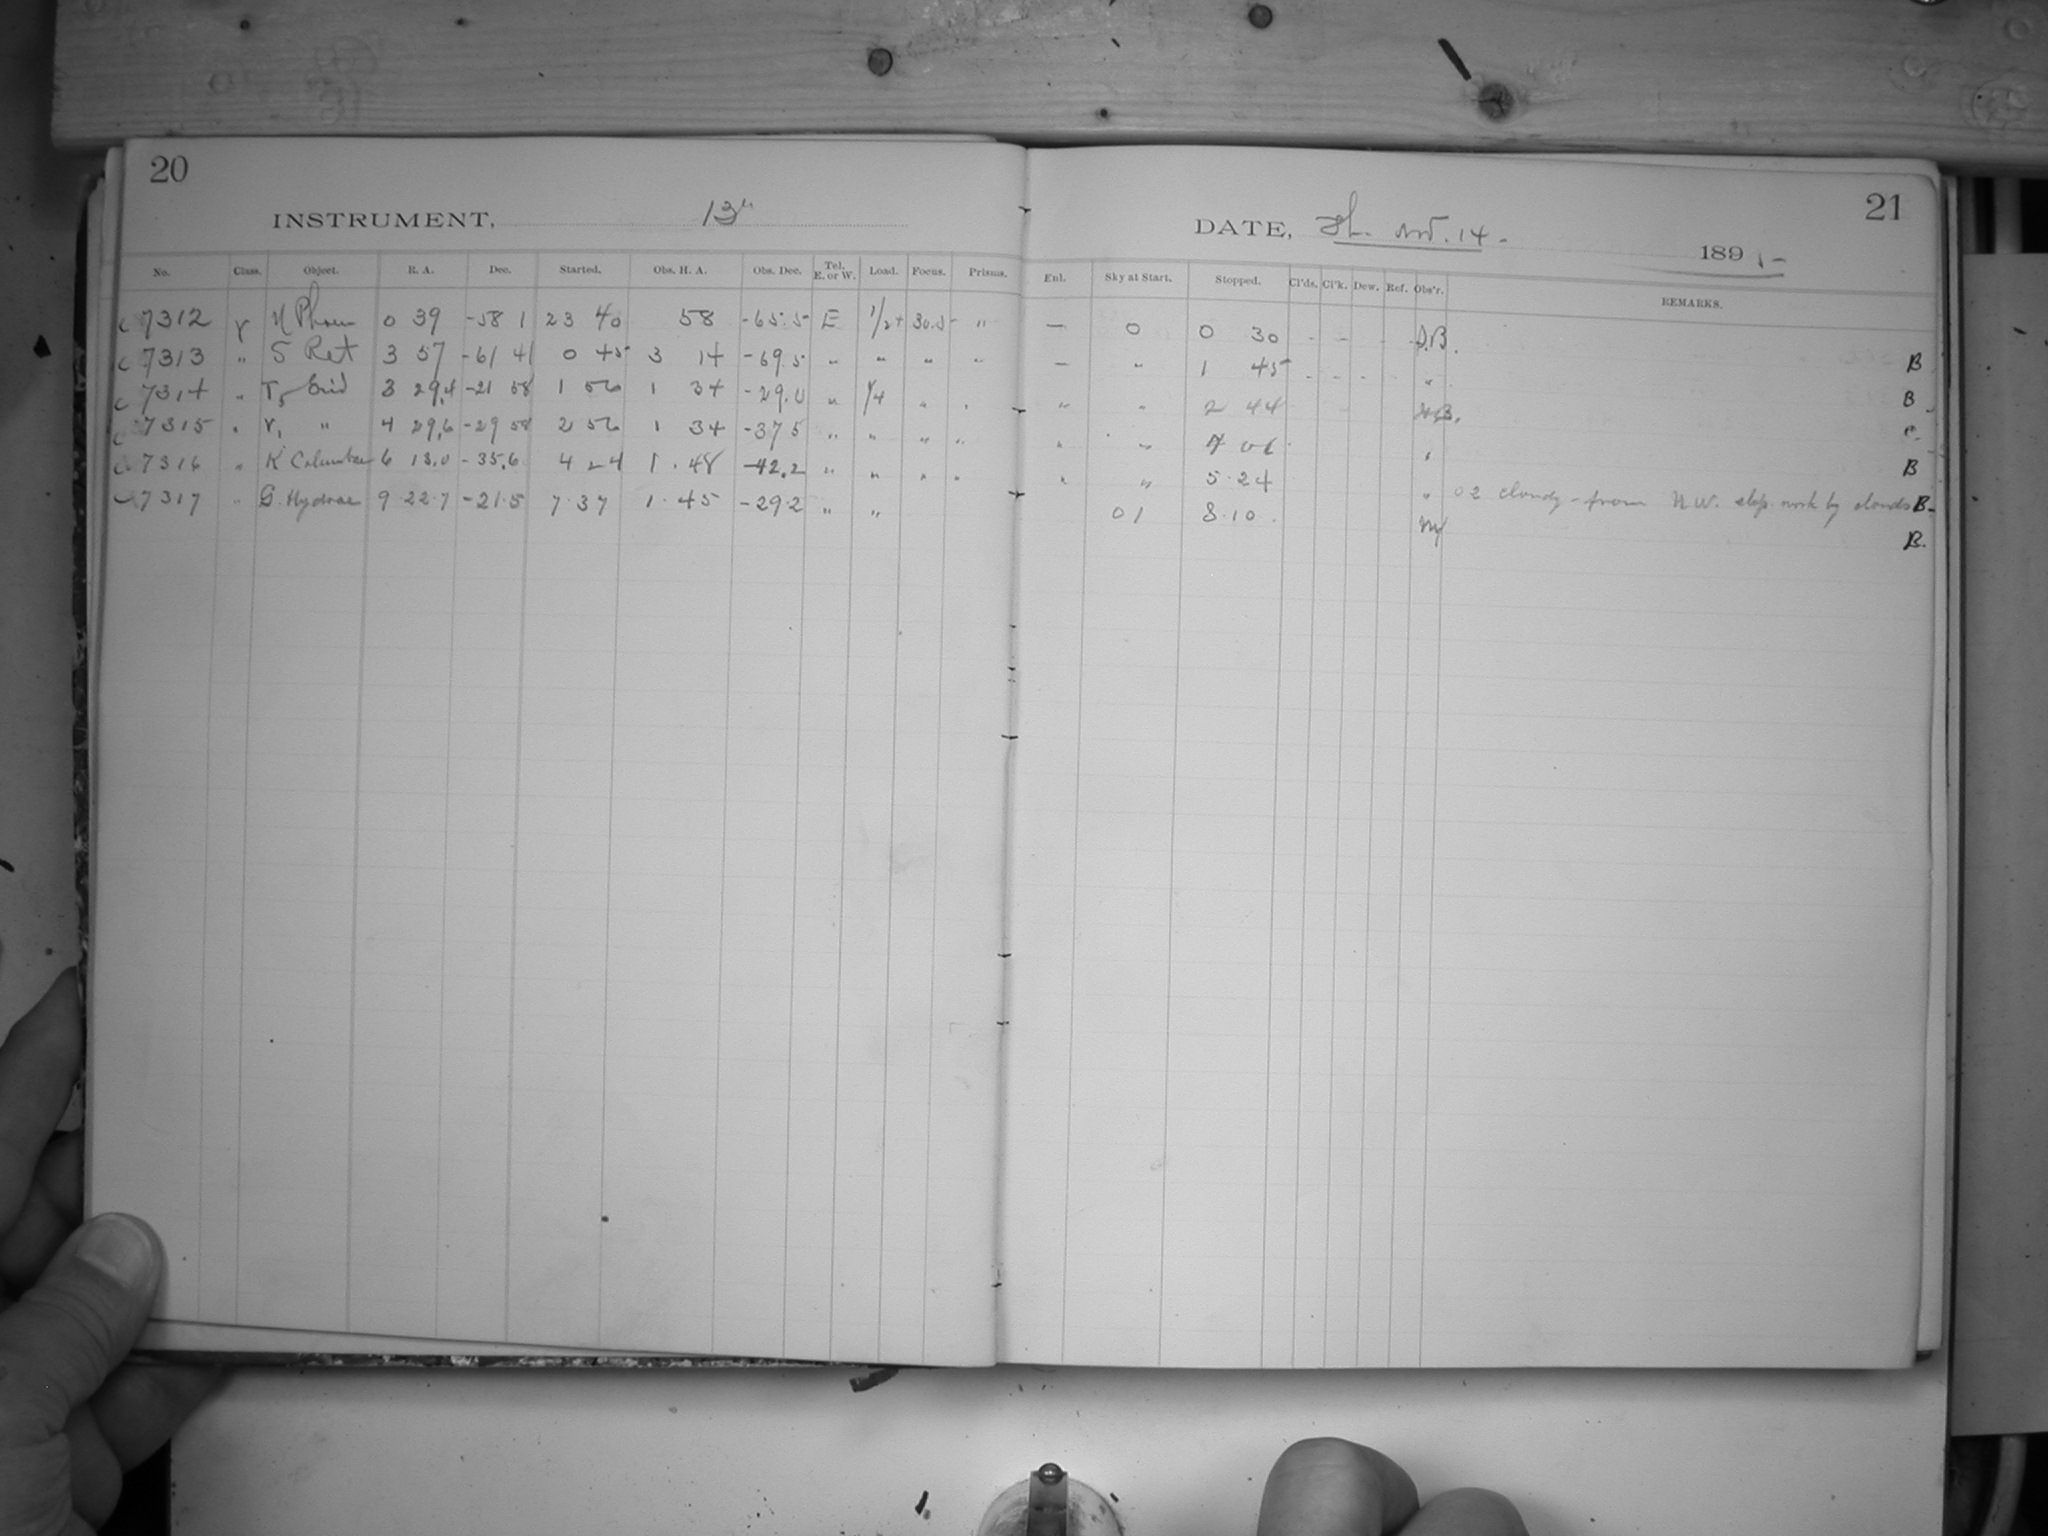 20
INSTRUMENT, 13"
No. Class. Object. R. A. Dec. Started. Obs. H. A. Obs. Dec. Tel. E. or W. Load. Focus. Prisms.
7312 γ η Phoen 0 39 -58 1 23 40 58 -65.5 E 1/2+ 30.5 "
7313 " Ret 3 57 -61 41 0 45 3 14 -69.5 " " " "
7314 " τ5 Erid 3 29.4 -21 58 1 56 1 34 -29.0 " 1/4 " "
7315 " " 4 29.6 -29 58 2 56 1 34 -37 5 " " " "
7316 " K Columbae 6 13.0 -35.6 4 24 1.48 -42.2 " " " "
7317 " G. Hydrae 9 22.7 -21.5 7.37 1.45 -29.2 " "
21
DATE, Nov. 14- 1891-
Enl. Sky at Start. Stopped. Cl'ds. Cl'k. Dew. Ref. Obs'r. REMARKS.
— 0 0 30 - - - B.
— " 1 45 - - - - " B
" " 2 44 - B. B
" " 06 "
" " 5.24 " 02 cloudy - from N.W. stop. work by clouds B
01 8.10 B-
B.